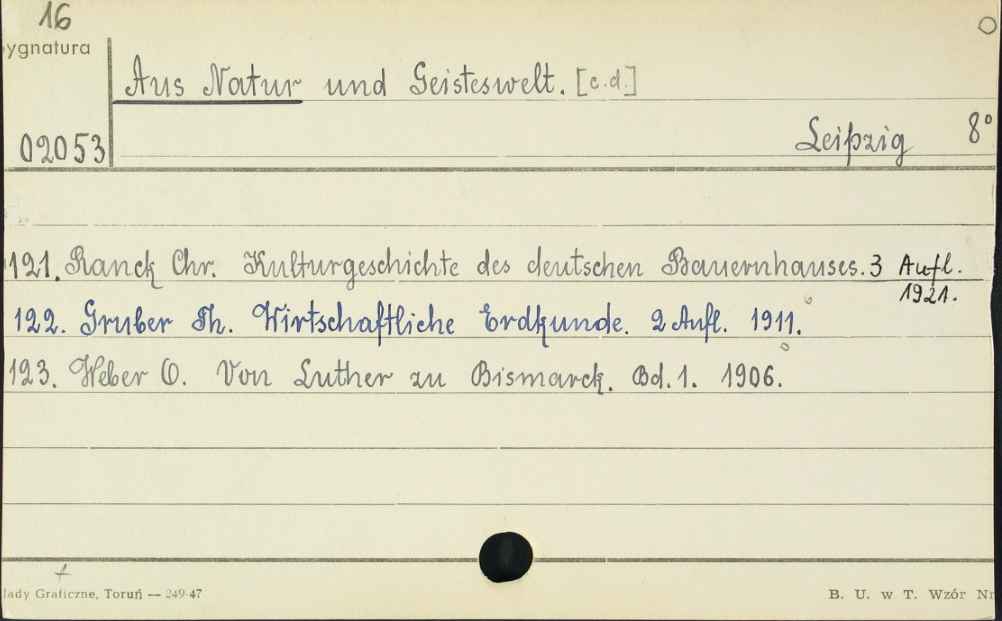 16
ygnatura
Aus Natur und Geisteswelt. [c.d.]
02053
Leipzig 8°
121. Ranck Chr. Kulturgeschichte des deutschen Bauernhauses. 3 Aufl.
1921.
122. Gruber Th. Wirtschaftliche Erdkunde. 2 Aufl. 1911.
123. Weber O. Von Luther zu Bismarck. Bd. 1. 1906.
łady Graficzne, Toruń — 249-47
B. U. w T. Wzór Nr